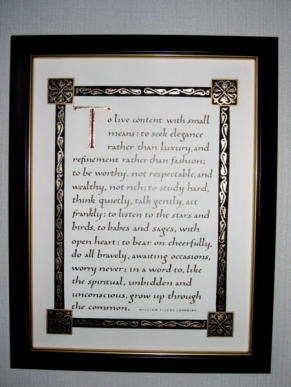 To live content with small
means; to seek elegance
rather than luxury, and
refinement rather than fashion;
to be worthy, not respectable, and
wealthy, not rich; to study hard,
think quietly, talk gently, act
frankly; to listen to the stars and
birds, to babes and sages, with
open heart; to bear on cheerfully,
do all bravely, awaiting occasions,
worry never; in a word to, like
the spiritual, unbidden and
unconscious, grow up through
the common. WILLIAM ELLERY CHANNING